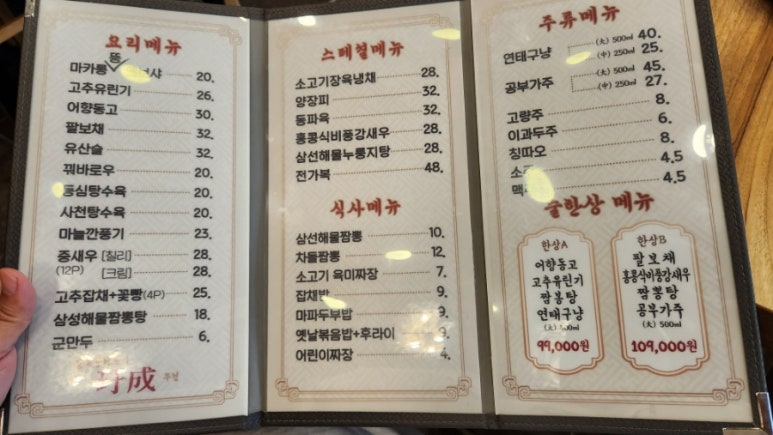 요리메뉴
뚱
마카롱 샤 20.
고추유린기 26.
어향동고 30.
팔보채 32.
유산슬 32.
꿔바로우 20.
등심탕수육 20.
사천탕수육 20.
마늘깐풍기 23.
중새우 [칠리] 28.
(12P) [크림] 28.
고추잡채+꽃빵(4P) 25.
삼성해물짬뽕탕 18.
군만두 6.
成
스페셜메뉴
소고기장육냉채 28.
양장피 32.
동파육 32.
홍콩식비풍강새우 28.
삼선해물누룽지탕 28.
전가복 48.
식사메뉴
삼선해물짬뽕 10.
차돌짬뽕 12.
소고기 유미짜장 7.
잡채밥 9.
마파두부밥 9.
옛날볶음밥+후라이 9.
어린이짜장 4.
주류메뉴
연태구냥 (大) 500㎖ 40.
(中) 250㎖ 25.
공부가주 (大) 500㎖ 45.
(中) 250㎖ 27.
고량주 8.
이과두주 6.
칭따오 8.
소 4.5
맥 4.5
술한상 메뉴
한상A
어향동고
고추유린기
짬뽕탕
연태구냥
(大) 500㎖
99,000원
한상B
팔보채
홍콩식비풍강새우
짬뽕탕
공부가주
(大) 500㎖
109,000원